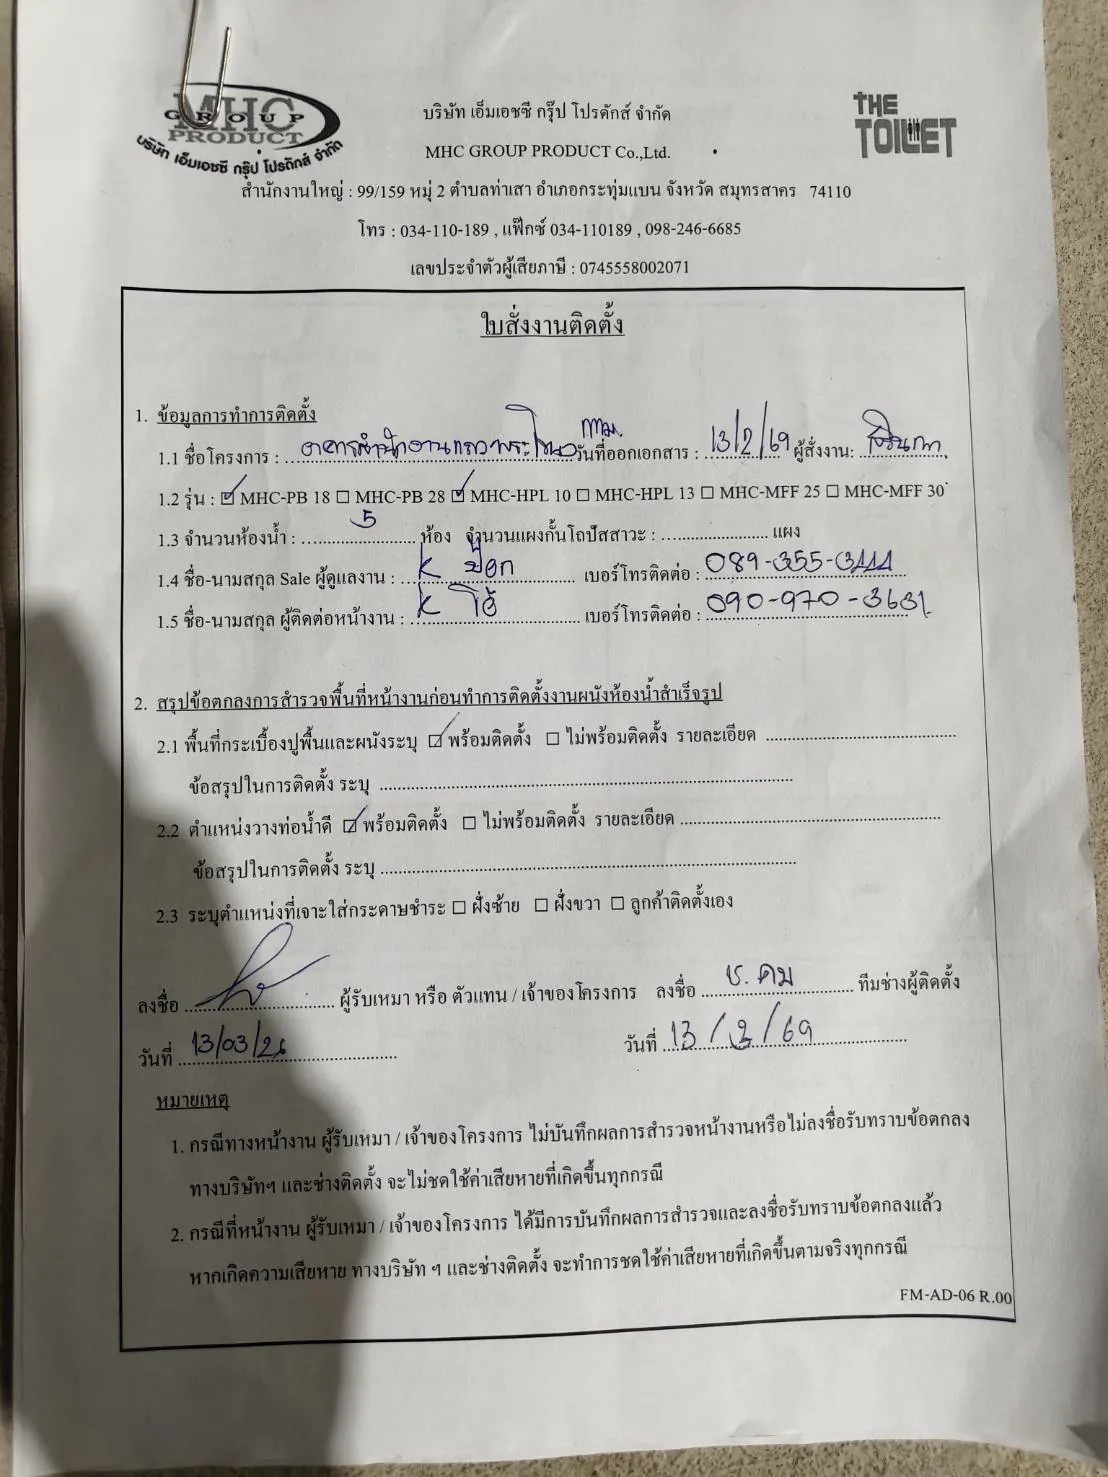 MHC
GROUP
PRODUCT
บริษัท เอ็มเอชซี กรุ๊ป โปรดักส์ จำกัด
THE
TOILET
บริษัท เอ็มเอชซี กรุ๊ป โปรดักส์ จำกัด
MHC GROUP PRODUCT Co.,Ltd.
สำนักงานใหญ่ : 99/159 หมู่ 2 ตำบลท่าเสา อำเภอกระทุ่มแบน จังหวัด สมุทรสาคร 74110
โทร : 034-110-189 , แฟ๊กซ์ 034-110189 , 098-246-6685
เลขประจำตัวผู้เสียภาษี : 0745558002071
ใบสั่งงานติดตั้ง
1. ข้อมูลการทำการติดตั้ง
1.1 ชื่อโครงการ : อาคารสำนักงานแถวพระโขนง กทม. วันที่ออกเอกสาร : 13/2/69 ผู้สั่งงาน:
1.2 รุ่น : ☑ MHC-PB 18 ☐ MHC-PB 28 ☑ MHC-HPL 10 ☐ MHC-HPL 13 ☐ MHC-MFF 25 ☐ MHC-MFF 30
1.3 จำนวนห้องน้ำ : 5 ห้อง จำนวนแผงกั้นโถปัสสาวะ : .................... แผง
1.4 ชื่อ-นามสกุล Sale ผู้ดูแลงาน : K ป๊อก เบอร์โทรติดต่อ : 089-355-3444
1.5 ชื่อ-นามสกุล ผู้ติดต่อหน้างาน : K โอ้ เบอร์โทรติดต่อ : 090-970-3631
2. สรุปข้อตกลงการสำรวจพื้นที่หน้างานก่อนทำการติดตั้งงานผนังห้องน้ำสำเร็จรูป
2.1 พื้นที่กระเบื้องปูพื้นและผนังระบุ ☑ พร้อมติดตั้ง ☐ ไม่พร้อมติดตั้ง รายละเอียด ....................
ข้อสรุปในการติดตั้ง ระบุ ....................
2.2 ตำแหน่งวางท่อน้ำดี ☑ พร้อมติดตั้ง ☐ ไม่พร้อมติดตั้ง รายละเอียด ....................
ข้อสรุปในการติดตั้ง ระบุ ....................
2.3 ระบุตำแหน่งที่เจาะใส่กระดาษชำระ ☐ ฝั่งซ้าย ☐ ฝั่งขวา ☐ ลูกค้าติดตั้งเอง
ลงชื่อ .................... ผู้รับเหมา หรือ ตัวแทน / เจ้าของโครงการ ลงชื่อ ช. คม ทีมช่างผู้ติดตั้ง
วันที่ 13/03/26 วันที่ 13/3/69
หมายเหตุ
1. กรณีทางหน้างาน ผู้รับเหมา / เจ้าของโครงการ ไม่บันทึกผลการสำรวจหน้างานหรือไม่ลงชื่อรับทราบข้อตกลง
ทางบริษัทฯ และช่างติดตั้ง จะไม่ชดใช้ค่าเสียหายที่เกิดขึ้นทุกกรณี
2. กรณีที่หน้างาน ผู้รับเหมา / เจ้าของโครงการ ได้มีการบันทึกผลการสำรวจและลงชื่อรับทราบข้อตกลงแล้ว
หากเกิดความเสียหาย ทางบริษัท ฯ และช่างติดตั้ง จะทำการชดใช้ค่าเสียหายที่เกิดขึ้นตามจริงทุกกรณี
FM-AD-06 R.00